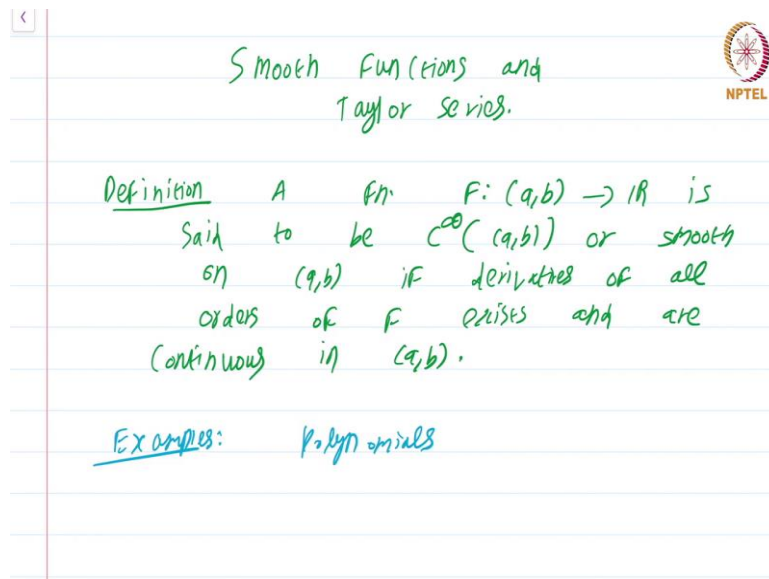 Smooth Functions and
Taylor series.
NPTEL
Definition A fn. F: (a,b) → ℝ is
said to be C^∞((a,b)) or smooth
on (a,b) if derivatives of all
orders of F exists and are
continuous in (a,b).
Examples: Polynomials